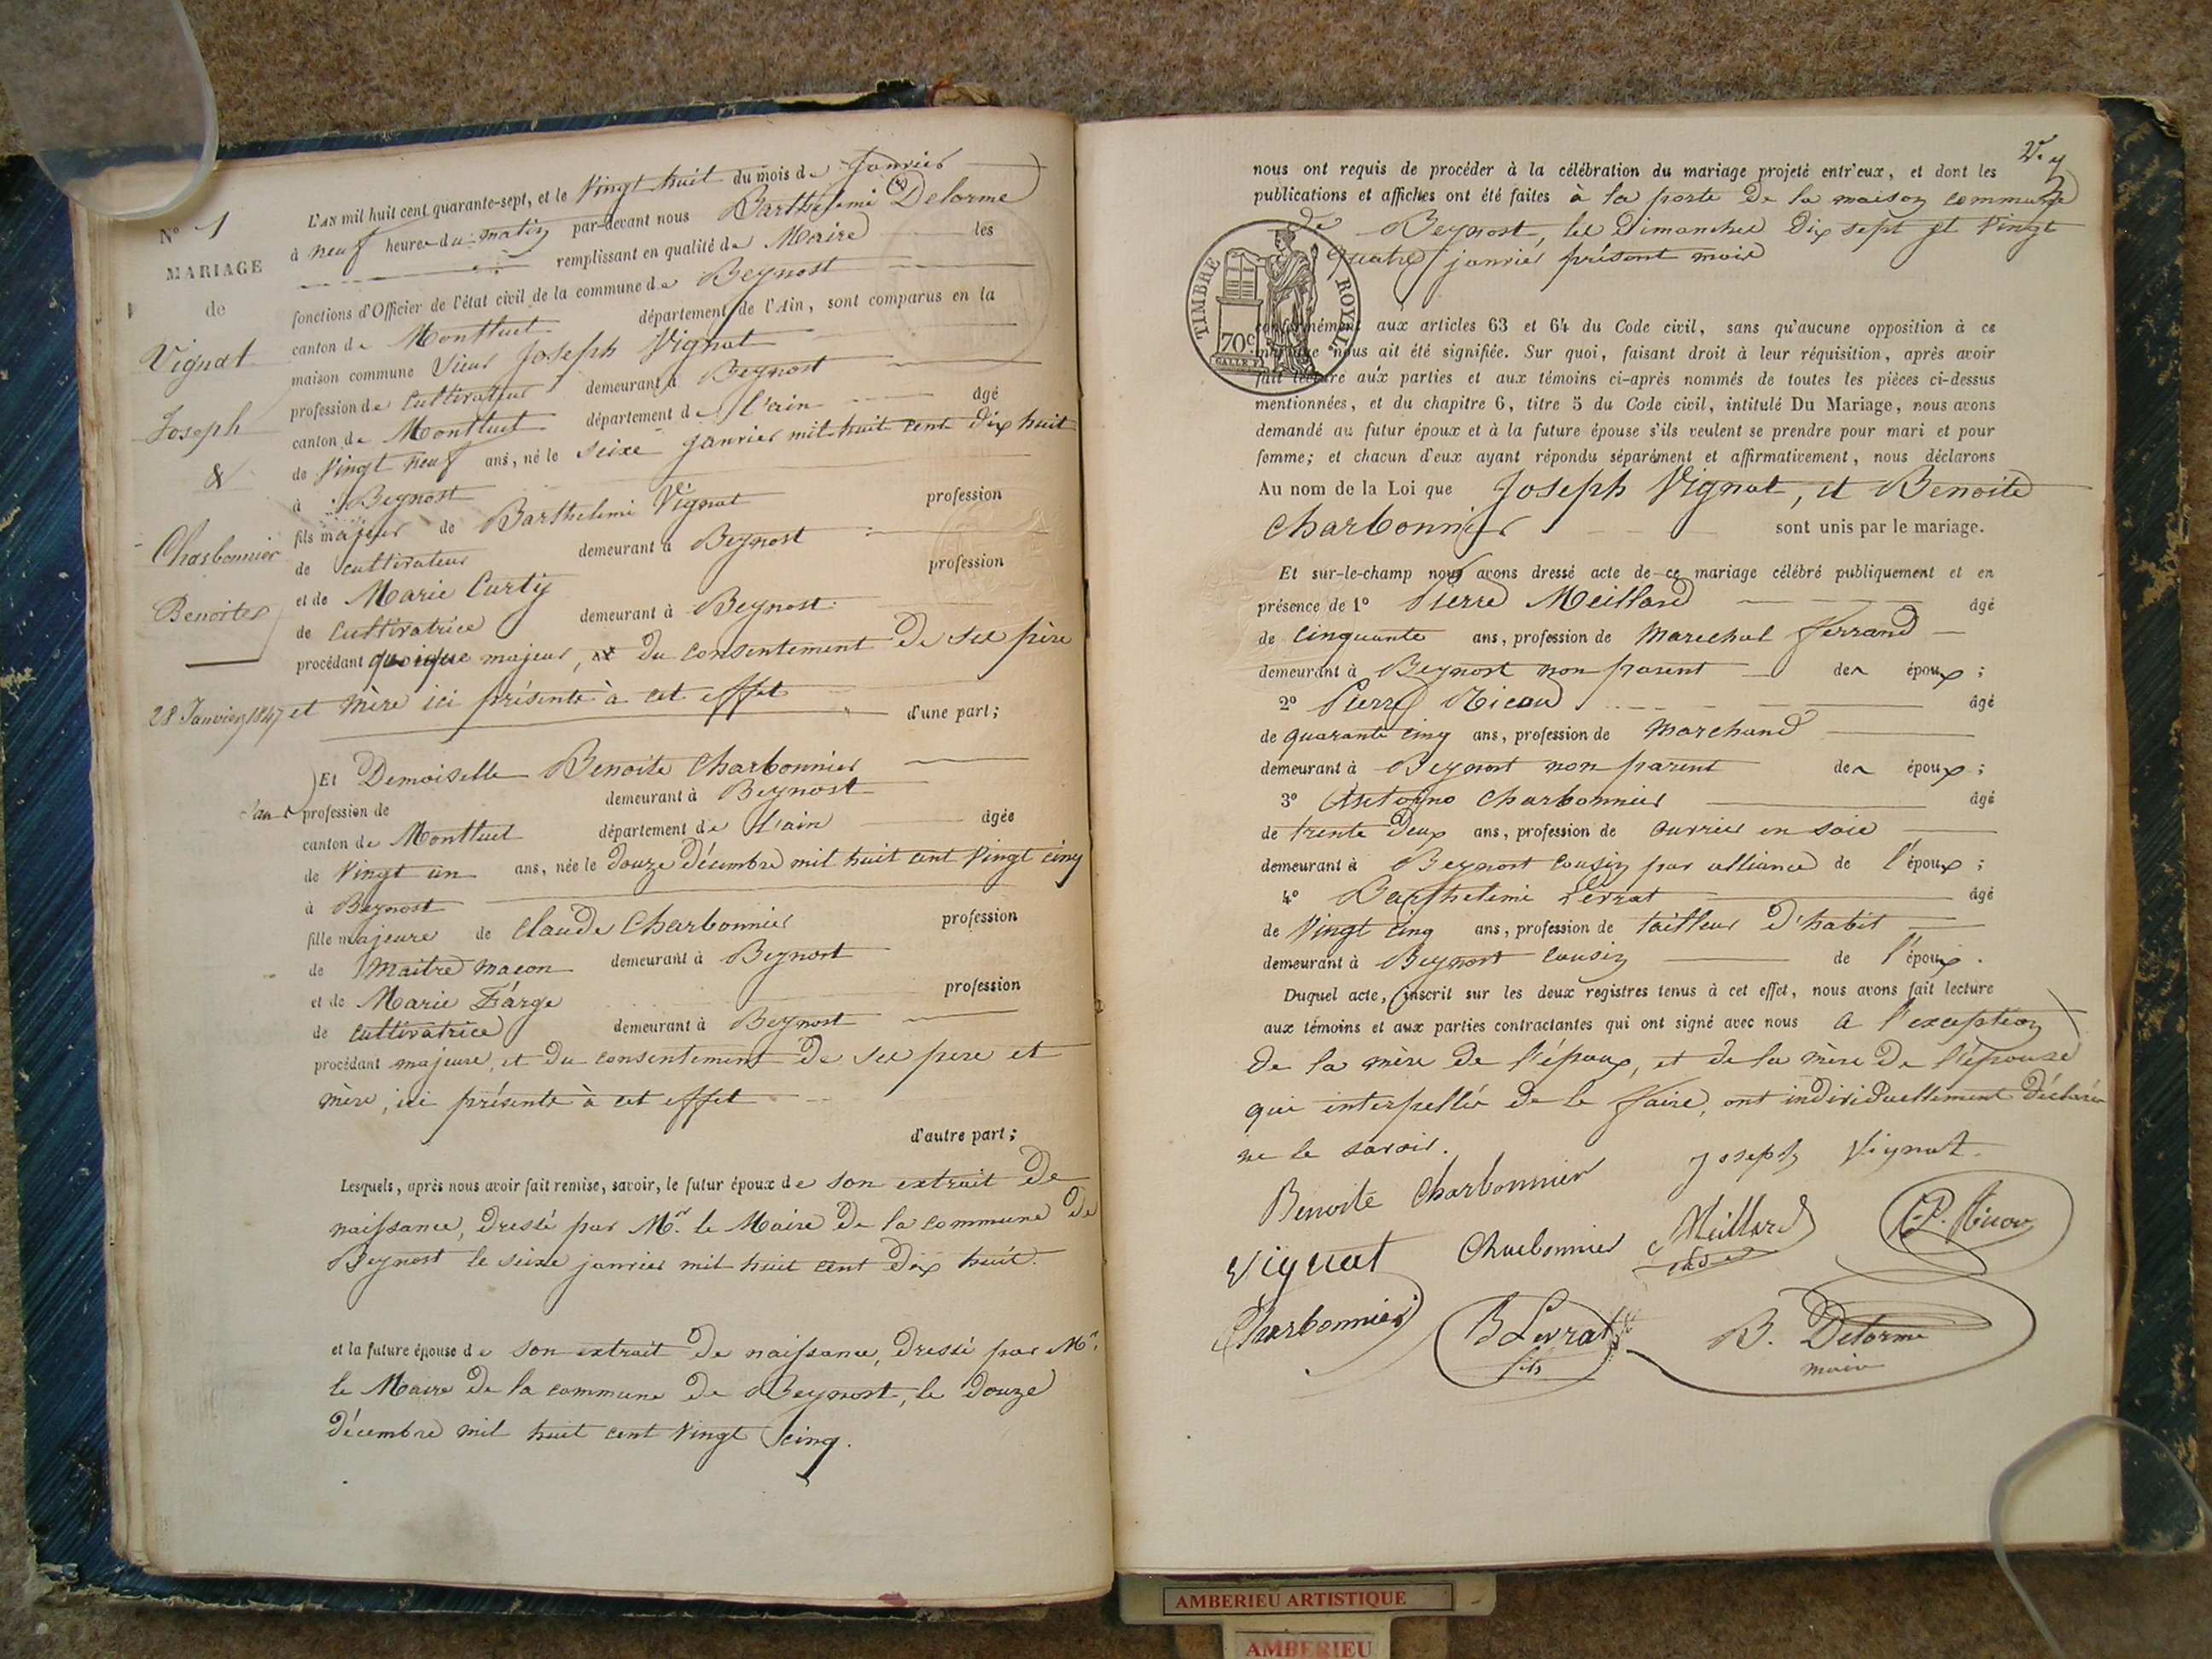 N° 1
MARIAGE
de
Vignat
Joseph
&
Charbonnier
Benoite
28 Janvier 1847
L'AN mil huit cent quarante-sept, et le Vingt huit du mois de Janvier
à neuf heures du matin par-devant nous Barthelemi Delorme
remplissant en qualité de Maire les
fonctions d'Officier de l'état civil de la commune de Beynost
canton de Montluel département de l'Ain, sont comparus en la
maison commune Sieur Joseph Vignat
profession de Cultivateur demeurant à Beynost
canton de Montluel département de l'ain âgé
de Vingt neuf ans, né le Seize janvier mil huit cent dix huit
à Beynost
fils majeur de Barthelemi Vignat profession
de cultivateur demeurant à Beynost
et de Marie Curty profession
de Cultivatrice demeurant à Beynost
procédant quoique majeur, du consentement de ses père
et mère ici présents à cet effet
d'une part;
Et Demoiselle Benoite Charbonnier
profession de demeurant à Beynost
canton de Montluel département de l'ain âgée
de Vingt un ans, née le douze décembre mil huit cent vingt cinq
à Beynost
fille majeure de Claude Charbonnier profession
de Maitre maçon demeurant à Beynost
et de Marie Farge profession
de Cultivatrice demeurant à Beynost
procédant majeure, et du consentement de ses pere et
mère, ici présents à cet effet
d'autre part;
Lesquels, après nous avoir fait remise, savoir, le futur époux de son extrait de
naissance, dressé par Mr. le Maire de la commune de
Beynost le seize janvier mil huit cent dix huit.
et la future épouse de son extrait de naissance, dressé par Mr.
le Maire de la commune de Beynost, le douze
décembre mil huit cent vingt cinq.
nous ont requis de procéder à la célébration du mariage projeté entr'eux, et dont les
publications et affiches ont été faites à la porte de la maison commune
de Beynost, les Dimanches dix sept et vingt
quatre janvier présent mois
TIMBRE ROYAL
70c
conformément aux articles 63 et 64 du Code civil, sans qu'aucune opposition à ce
mariage nous ait été signifiée. Sur quoi, faisant droit à leur réquisition, après avoir
fait lecture aux parties et aux témoins ci-après nommés de toutes les pièces ci-dessus
mentionnées, et du chapitre 6, titre 5 du Code civil, intitulé Du Mariage, nous avons
demandé au futur époux et à la future épouse s'ils veulent se prendre pour mari et pour
femme; et chacun d'eux ayant répondu séparément et affirmativement, nous déclarons
Au nom de la Loi que Joseph Vignat, et Benoite
Charbonnier sont unis par le mariage.
Et sur-le-champ nous avons dressé acte de ce mariage célébré publiquement et en
présence de 1° Pierre Meillard âgé
de cinquante ans, profession de Marechal ferrand
demeurant à Beynost non parent des époux;
2° Pierre Nicoud âgé
de quarante cinq ans, profession de Marchand
demeurant à Beynost non parent des époux;
3° Antoine Charbonnier âgé
de trente deux ans, profession de ouvrier en soie
demeurant à Beynost cousin par alliance de l'époux;
4° Barthelemi Levrat âgé
de Vingt cinq ans, profession de tailleur d'habit
demeurant à Beynost cousin de l'époux.
Duquel acte, inscrit sur les deux registres tenus à cet effet, nous avons fait lecture
aux témoins et aux parties contractantes qui ont signé avec nous à l'exception
de la mère de l'époux, et de la mère de l'épouse
qui interpellés de le faire, ont individuellement déclaré
ne le savoir.
Benoite Charbonnier Joseph Vignat
Vignat Charbonnier Meillard
Charbonnier B Levrat fils B. Delorme
maire
AMBERIEU ARTISTIQUE
AMBERIEU